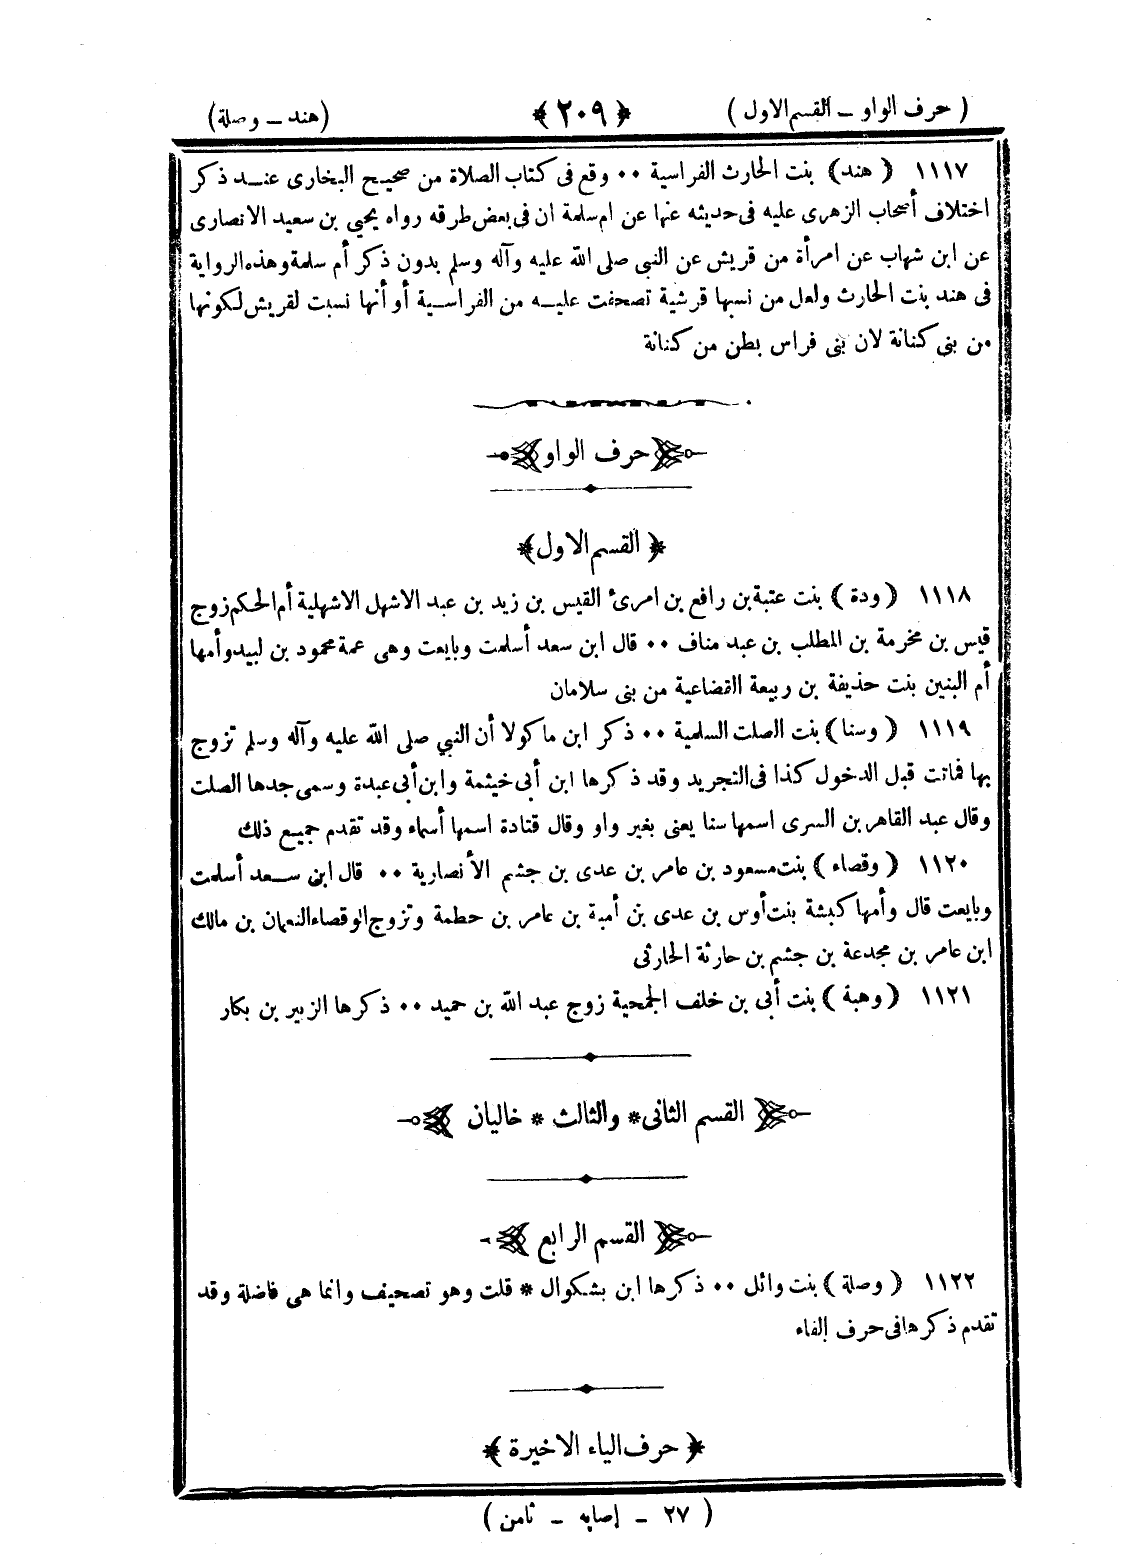 ( حرف الواو – القسم الاول ) ﴿ ٢٠٩ ﴾ (هند – وصلة)
١١١٧ ( هند ) بنت الحارث الفراسية ٠٠ وقع فى كتاب الصلاة من صحيح البخارى عند ذكر
اختلاف أصحاب الزهرى عليه فى حديثه عنها عن ام سلمة ان فى بعض طرقه رواه يحيى بن سعيد الانصارى
عن ابن شهاب عن امرأة من قريش عن النبى صلى الله عليه وآله وسلم بدون ذكر أم سلمة وهذه الرواية
فى هند بنت الحارث ولعل من نسبها قرشية تصحفت عليه من الفراسية أو أنها نسبت لقريش لكونها
من بنى كنانة لان بنى فراس بطن من كنانة
حرف الواو
﴿ القسم الاول ﴾
١١١٨ ( ودة ) بنت عتبة بن رافع بن امرئ القيس بن زيد بن عبد الاشهل الاشهلية أم الحكم زوج
قيس بن مخرمة بن المطلب بن عبد مناف ٠٠ قال ابن سعد أسلمت وبايعت وهى عمة محمود بن لبيد وأمها
أم البنين بنت حذيفة بن ربيعة القضاعية من بنى سلامان
١١١٩ ( وسنا ) بنت الصلت السلمية ٠٠ ذكر ابن ماكولا أن النبي صلى الله عليه وآله وسلم تزوج
بها فماتت قبل الدخول كذا فى التجريد وقد ذكرها ابن أبى خيثمة وابن أبى عبدة وسمى جدها الصلت
وقال عبد القاهر بن السرى اسمها سنا يعنى بغير واو وقال قتادة اسمها أسماء وقد تقدم جميع ذلك
١١٢٠ ( وقصاء ) بنت مسعود بن عامر بن عدى بن جشم الأنصارية ٠٠ قال ابن سعد أسلمت
وبايعت قال وأمها كبشة بنت أوس بن عدى بن أمية بن عامر بن حطمة وتزوج الوقصاء النعمان بن مالك
ابن عامر بن مجدعة بن جشم بن حارثة الحارثى
١١٢١ ( وهبة ) بنت أبى بن خلف الجمحية زوج عبد الله بن حميد ٠٠ ذكرها الزبير بن بكار
القسم الثانى * والثالث * خاليان
القسم الرابع
١١٢٢ ( وصلة ) بنت وائل ٠٠ ذكرها ابن بشكوال * قلت وهو تصحيف وانما هى فاضلة وقد
تقدم ذكرها فى حرف الفاء
﴿ حرف الياء الاخيرة ﴾
( ٢٧ – إصابه – ثامن )